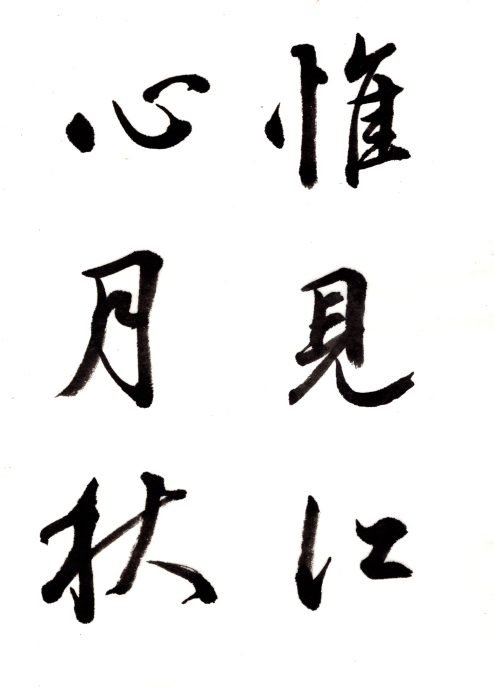 惟見江
心月秋